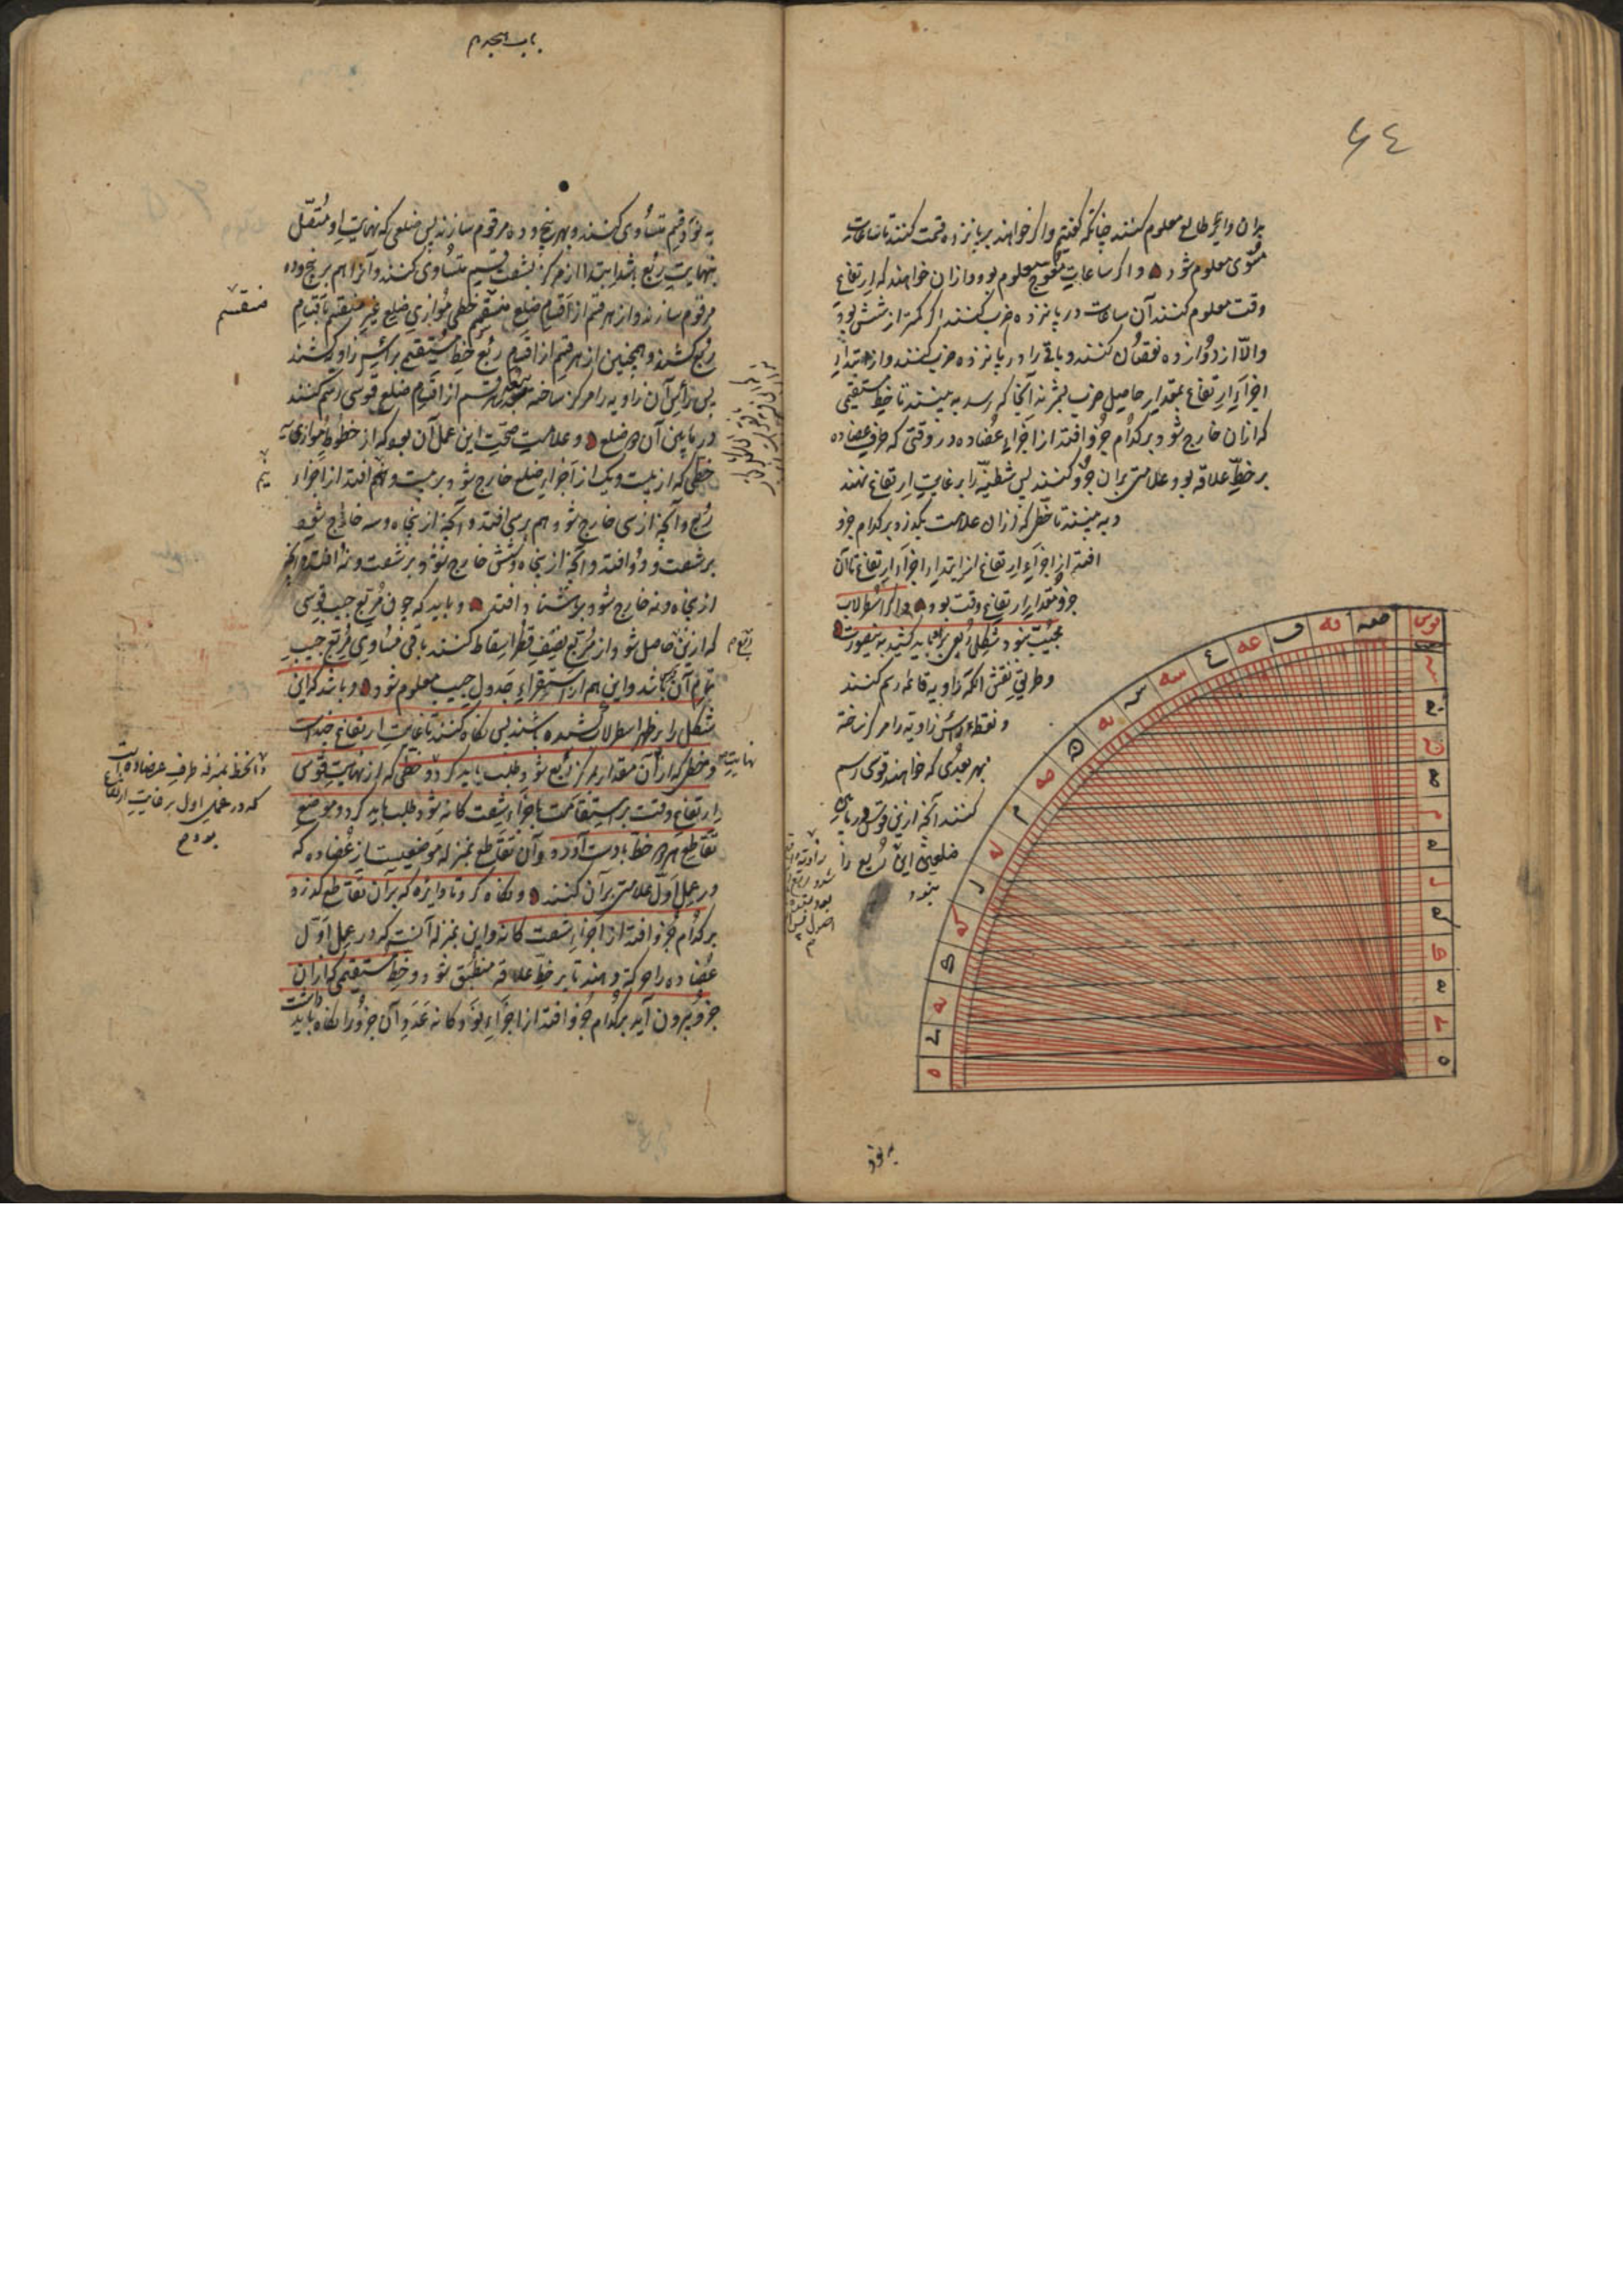 ٤۶
بران دایره طالع معلوم کنند چنانکه گفتیم و اگر خواهند بر پانزده قسمت کنند تا ساعات
مستوی معلوم شود و اگر ساعات معوج معلوم بود و ازان خواهند که ارتفاع
وقت معلوم کنند آن ساعات در پانزده ضرب کنند اگر کمتر از شش بود
والا از دوازده نقصان کنند و باقی را در پانزده ضرب کنند و از ابتداء
اجزاء ارتفاع بمقدار حاصل ضرب بشمرند آنجا که رسد به بینند تا خط مستقیمی
که ازان خارج شود بر کدام جزو افتد از اجزاء عضاده در وقتی که حرف عضاده
بر خط علاقه بود و علامتی بران جزو کنند پس شظیه را بر غایت ارتفاع نهند
و به بینند تا خطی که ازان علامت بگذرد بر کدام جزو
افتد از اجزاء ارتفاع از ابتداء اجزاء ارتفاع تا آن
جزو مقدار ارتفاع وقت بود و اگر اسطرلاب
مجیب نبود شکل ربعی باید کشید بدینصورت
و طریق نقش آنکه زاویه قائمه رسم کنند
و نقطه رأس زاویه را مرکز ساخته
بهر بعدی که خواهند قوسی رسم
کنند آنچه ازین قوس در میان
ضلعین این ربع را
بنود
به نود
باب هیجدهم
به نود قسم متساوی کنند و بهر پنج و ده مرقوم سازند پس ضلعی که نهایت او متصل
بنهایت ربع باشد ابتدا از مرکز بشصت قسم متساوی کنند و آنرا هم بر پنج و ده
مرقوم سازند و از هر قسم از اقسام ضلع منقسم خطی موازی ضلع غیر منقسم تا قسام
ربع کشند و همچنین از هر قسم از اقسام ربع خط مستقیم برأس زاویه کشند
پس رأس آن زاویه را مرکز ساخته ببعد هر قسم از اقسام ضلع قوسی رسم کنند
در مابین آن دو ضلع و علامت صحت این عمل آن بود که از خطوط موازی
خطی که از بیست و یک از اجزاء ضلع خارج شود بر بیست و نیم افتد از اجزاء
ربع و آنچه از سی خارج شود هم بر سی افتد و آنچه از پنجاه و سه خارج شود
بر شصت و دو افتد و آنچه از پنجاه و شش خارج شود بر شصت و نه افتد و آنچه
از پنجاه و نه خارج شود بر هشتاد افتد و باید که چون مربع جیب قوسی
که ازین حاصل شود از مربع نصف قطر اسقاط کنند باقی مساوی مربع جیب
تمام آن باشد و این هم از استقراء جدول جیب معلوم شود و باشد که این
شکل را بر ظهر اسطرلاب کشیده باشند پس نگاه کنند تا غایت ارتفاع چند است
و خطی که از آن مقدار بمرکز ربع شود طلب باید کرد و خطی که از نهایت قوس
ارتفاع وقت بر استقامت باجزاء شصت گانه شود طلب باید کرد و موضع
تقاطع هر دو خط بدست آورد و آن تقاطع بمنزله موضعیست از عضاده که
در عمل اول علامتی بر آن کنند و نگاه کرد تا دایره که بر آن تقاطع گذرد
بر کدام جزو افتد از اجزاء شصت گانه و این بمنزله آنست که در عمل اول
عضاده را حرکت دهند تا بر خط علاقه منطبق شود و خط مستقیمی که ازان
جزو بیرون آید بر کدام جزو افتد از اجزاء نود گانه عدد آن جزو را نگاه باید داشت
منقسم
نیم
و آنخط بمنزله طرف عضاده است
که در عمل اول بر غایت ارتفاع
بود
نهایت
قوس